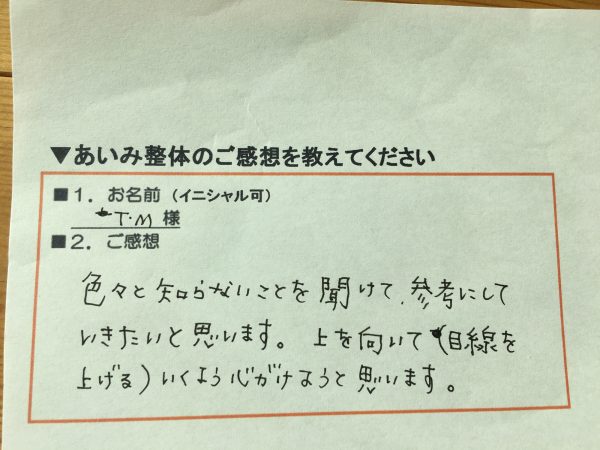 ▼あいみ整体のご感想を教えてください
■1．お名前（イニシャル可）
T・M 様
■2．ご感想
色々と知らないことを聞けて、参考にして
いきたいと思います。上を向いて（目線を
上げる）いくよう心がけようと思います。